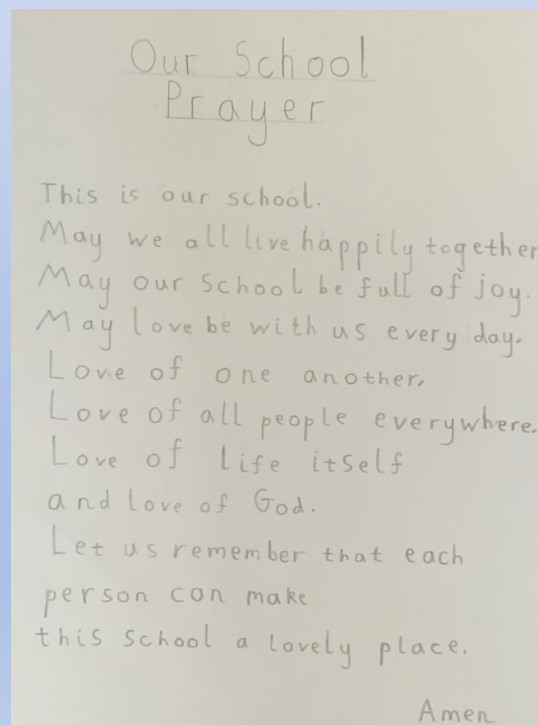 Our School
Prayer
This is our school.
May we all live happily together
May our school be full of joy.
May love be with us every day.
Love of one another,
Love of all people everywhere.
Love of life itself
and love of God.
Let us remember that each
person can make
this school a lovely place.
Amen